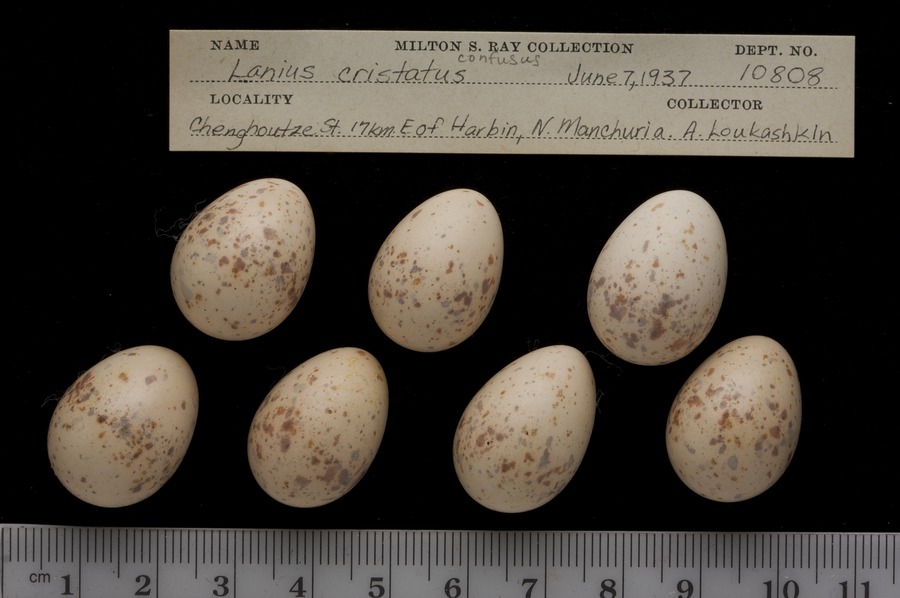 NAME MILTON S. RAY COLLECTION DEPT. NO.
confusus
Lanius cristatus June 7, 1937 10808
LOCALITY COLLECTOR
Chenghoutze St. 17km E of Harbin, N. Manchuria. A. Loukashkin
cm 1 2 3 4 5 6 7 8 9 10 11